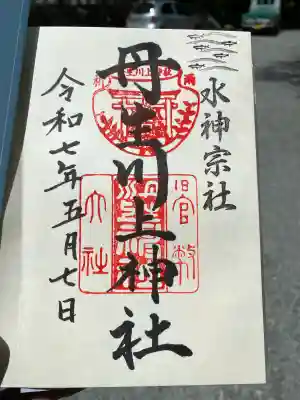 水神宗社
丹生川上神社
令和七年五月七日
官幣
大社